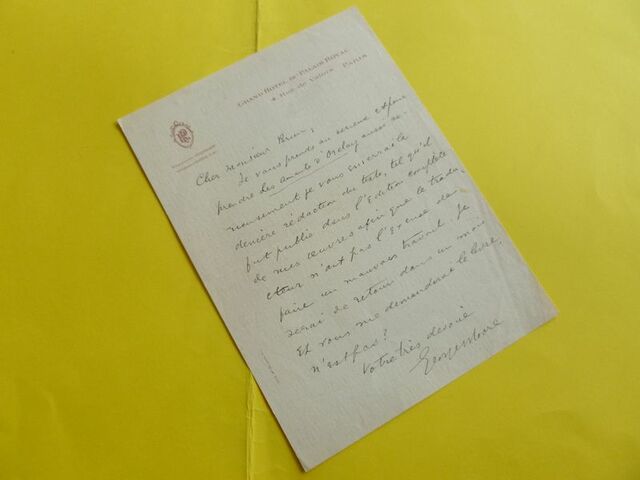 GRAND HOTEL DU PALAIS ROYAL
4, Rue de Valois PARIS
Cher Monsieur
Je vous prends au serieux et pour
prendre les amants d'Orelay aussi se-
rieusement je vous enverrai la
dernière rédaction du texte, tel qu'il
fut publié dans l'edition complette
de mes œuvres afin que le traduc-
teur n'ait pas l'excuse de
faire un mauvais travail. Je
serai de retour dans un mois
et vous me demanderai le livre,
n'est pas?
Votre très devoué
George Moore